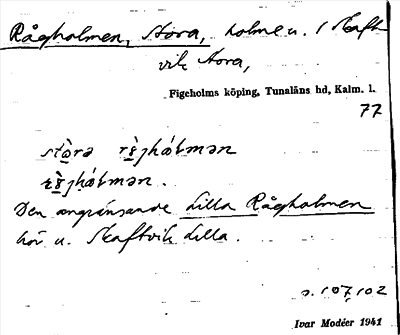 Rågholmen, Stora, holme u. / Skaft-
vik Stora,
Figeholms köping, Tunaläns hd, Kalm. l.
77
Den angränsande Lilla Rågholmen
hör u. Skaftvik Lilla.
s. 107, 102
Ivar Modéer 1941